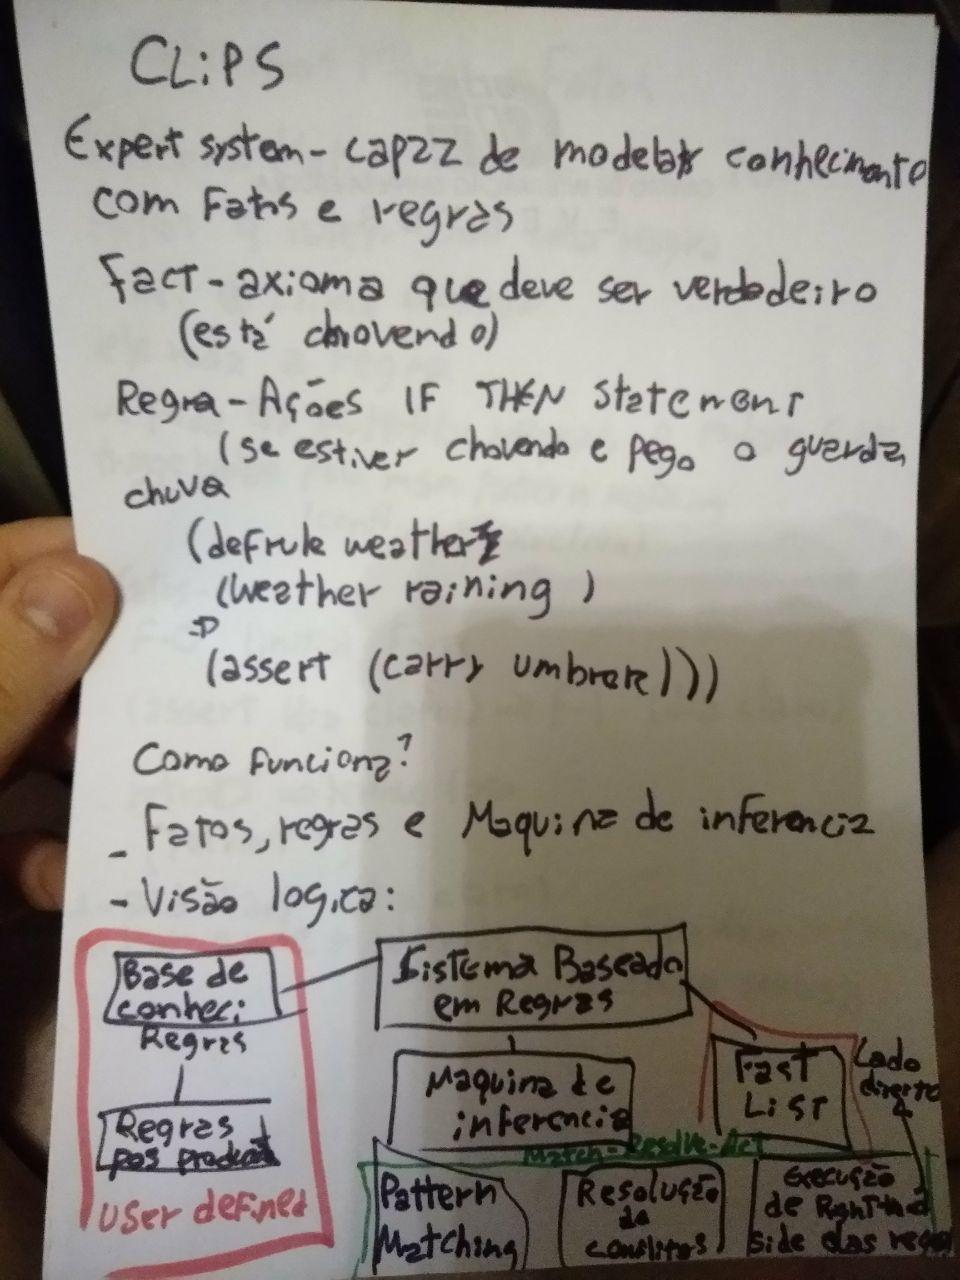 CLiPS
Expert system - capaz de modelar conhecimento
com Fatos e regras
Fact - axioma que deve ser verdadeiro
(está chovendo)
Regra - Ações IF THEN Statement
(se estiver chovendo e pego o guarda
chuva
(defrule weather
(weather raining )
=>
(assert (carry umbrere)))
Como funciona?
- Fatos, regras e Maquina de inferencia
- Visão logica:
Sistema Baseado
em Regras
Base de
conheci:
Regras
Regras
User defined
Maquina de
inferencia
Fast
List
Lado
direito
Match-Resolve-Act
Pattern
Matching
Resolução
de
conflitos
Execução
de Right Hand
side das regras